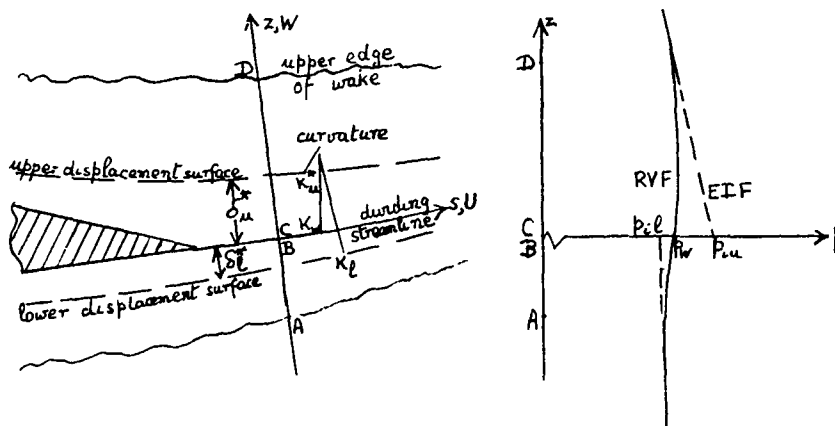 z,W
D
upper edge
of wake
curvature
upper displacement surface
κ*u
δ*u
κu
dividing
streamline
s,U
C
B
δ*l
κl
lower displacement surface
A
z
D
RVF
EIF
C
B
pil
pw
piu
A